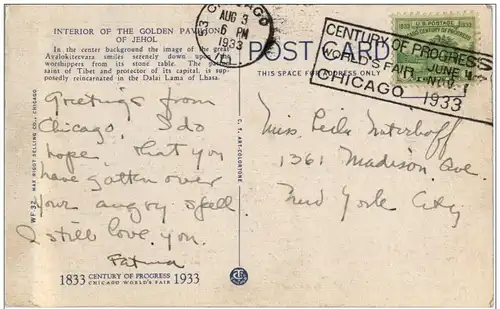 INTERIOR OF THE GOLDEN PAVILION
OF JEHOL
In the center background the image of the great
Avalokitesvara smiles serenely down upon
worshippers from its stone table. The
saint of Tibet and protector of its capital, is sup-
posedly reincarnated in the Dalai Lama of Lhasa.
CHICAGO
AUG 3
6 PM
1933
POST CARD
THIS SPACE FOR ADDRESS ONLY
1833 U.S. POSTAGE 1933
CENTURY OF PROGRESS
WORLD'S FAIR JUNE 1
NOV. 1
CHICAGO 1933
Greetings from
Chicago, I do
hope, that you
have gotten over
your angry spell
I still love you.
Miss
1361 Madison Ave.
New York City
WF 32 MAX RIGOT SELLING CO., CHICAGO
C. T. ART-COLORTONE
1833 CENTURY OF PROGRESS 1933
CHICAGO WORLD'S FAIR